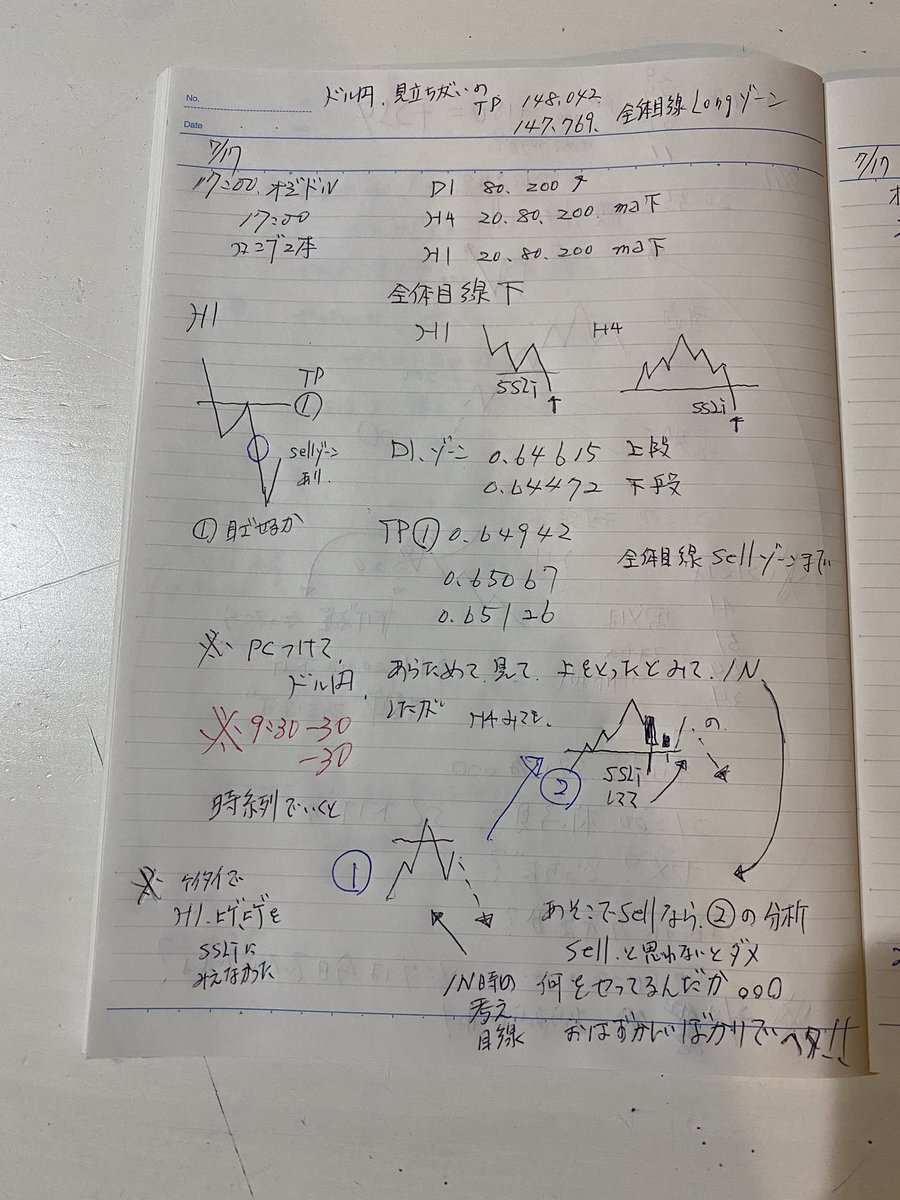 No.
Date
ドル円、見立ち違いの
TP 148.042
147.769. 全体目線 Longゾーン
7/17
17:00. オージドル
17:00
D1 80. 200 下
H4 20. 80. 200. ma下
H1 20. 80. 200 ma下
全体目線 下
H1
H1
H4
TP
①
SSLi
SSLi
sellゾーン
あり.
D1. ゾーン 0.64615 上段
0.64472 下段
① 目ざせるか
TP① 0.64942
0.65067
0.65126
全体目線 sellゾーンまで
※ PCつけて、
ドル円、
あらためて、見て、上をとったとみて、IN
したが
H4みても、
の
※ 9:30 -30
-30
②
SSLi
してて
時系列でいくと
①
※ ケイタイで
H1. ヒゲ、ヒゲを
SSLiに
みえなかった
あそこでsellなら、②の分析
sell.と思わないとダメ
IN時の
考え
目線
何をやってるんだか。。。
おはずかしいばかりで ヘタ!!
7/17